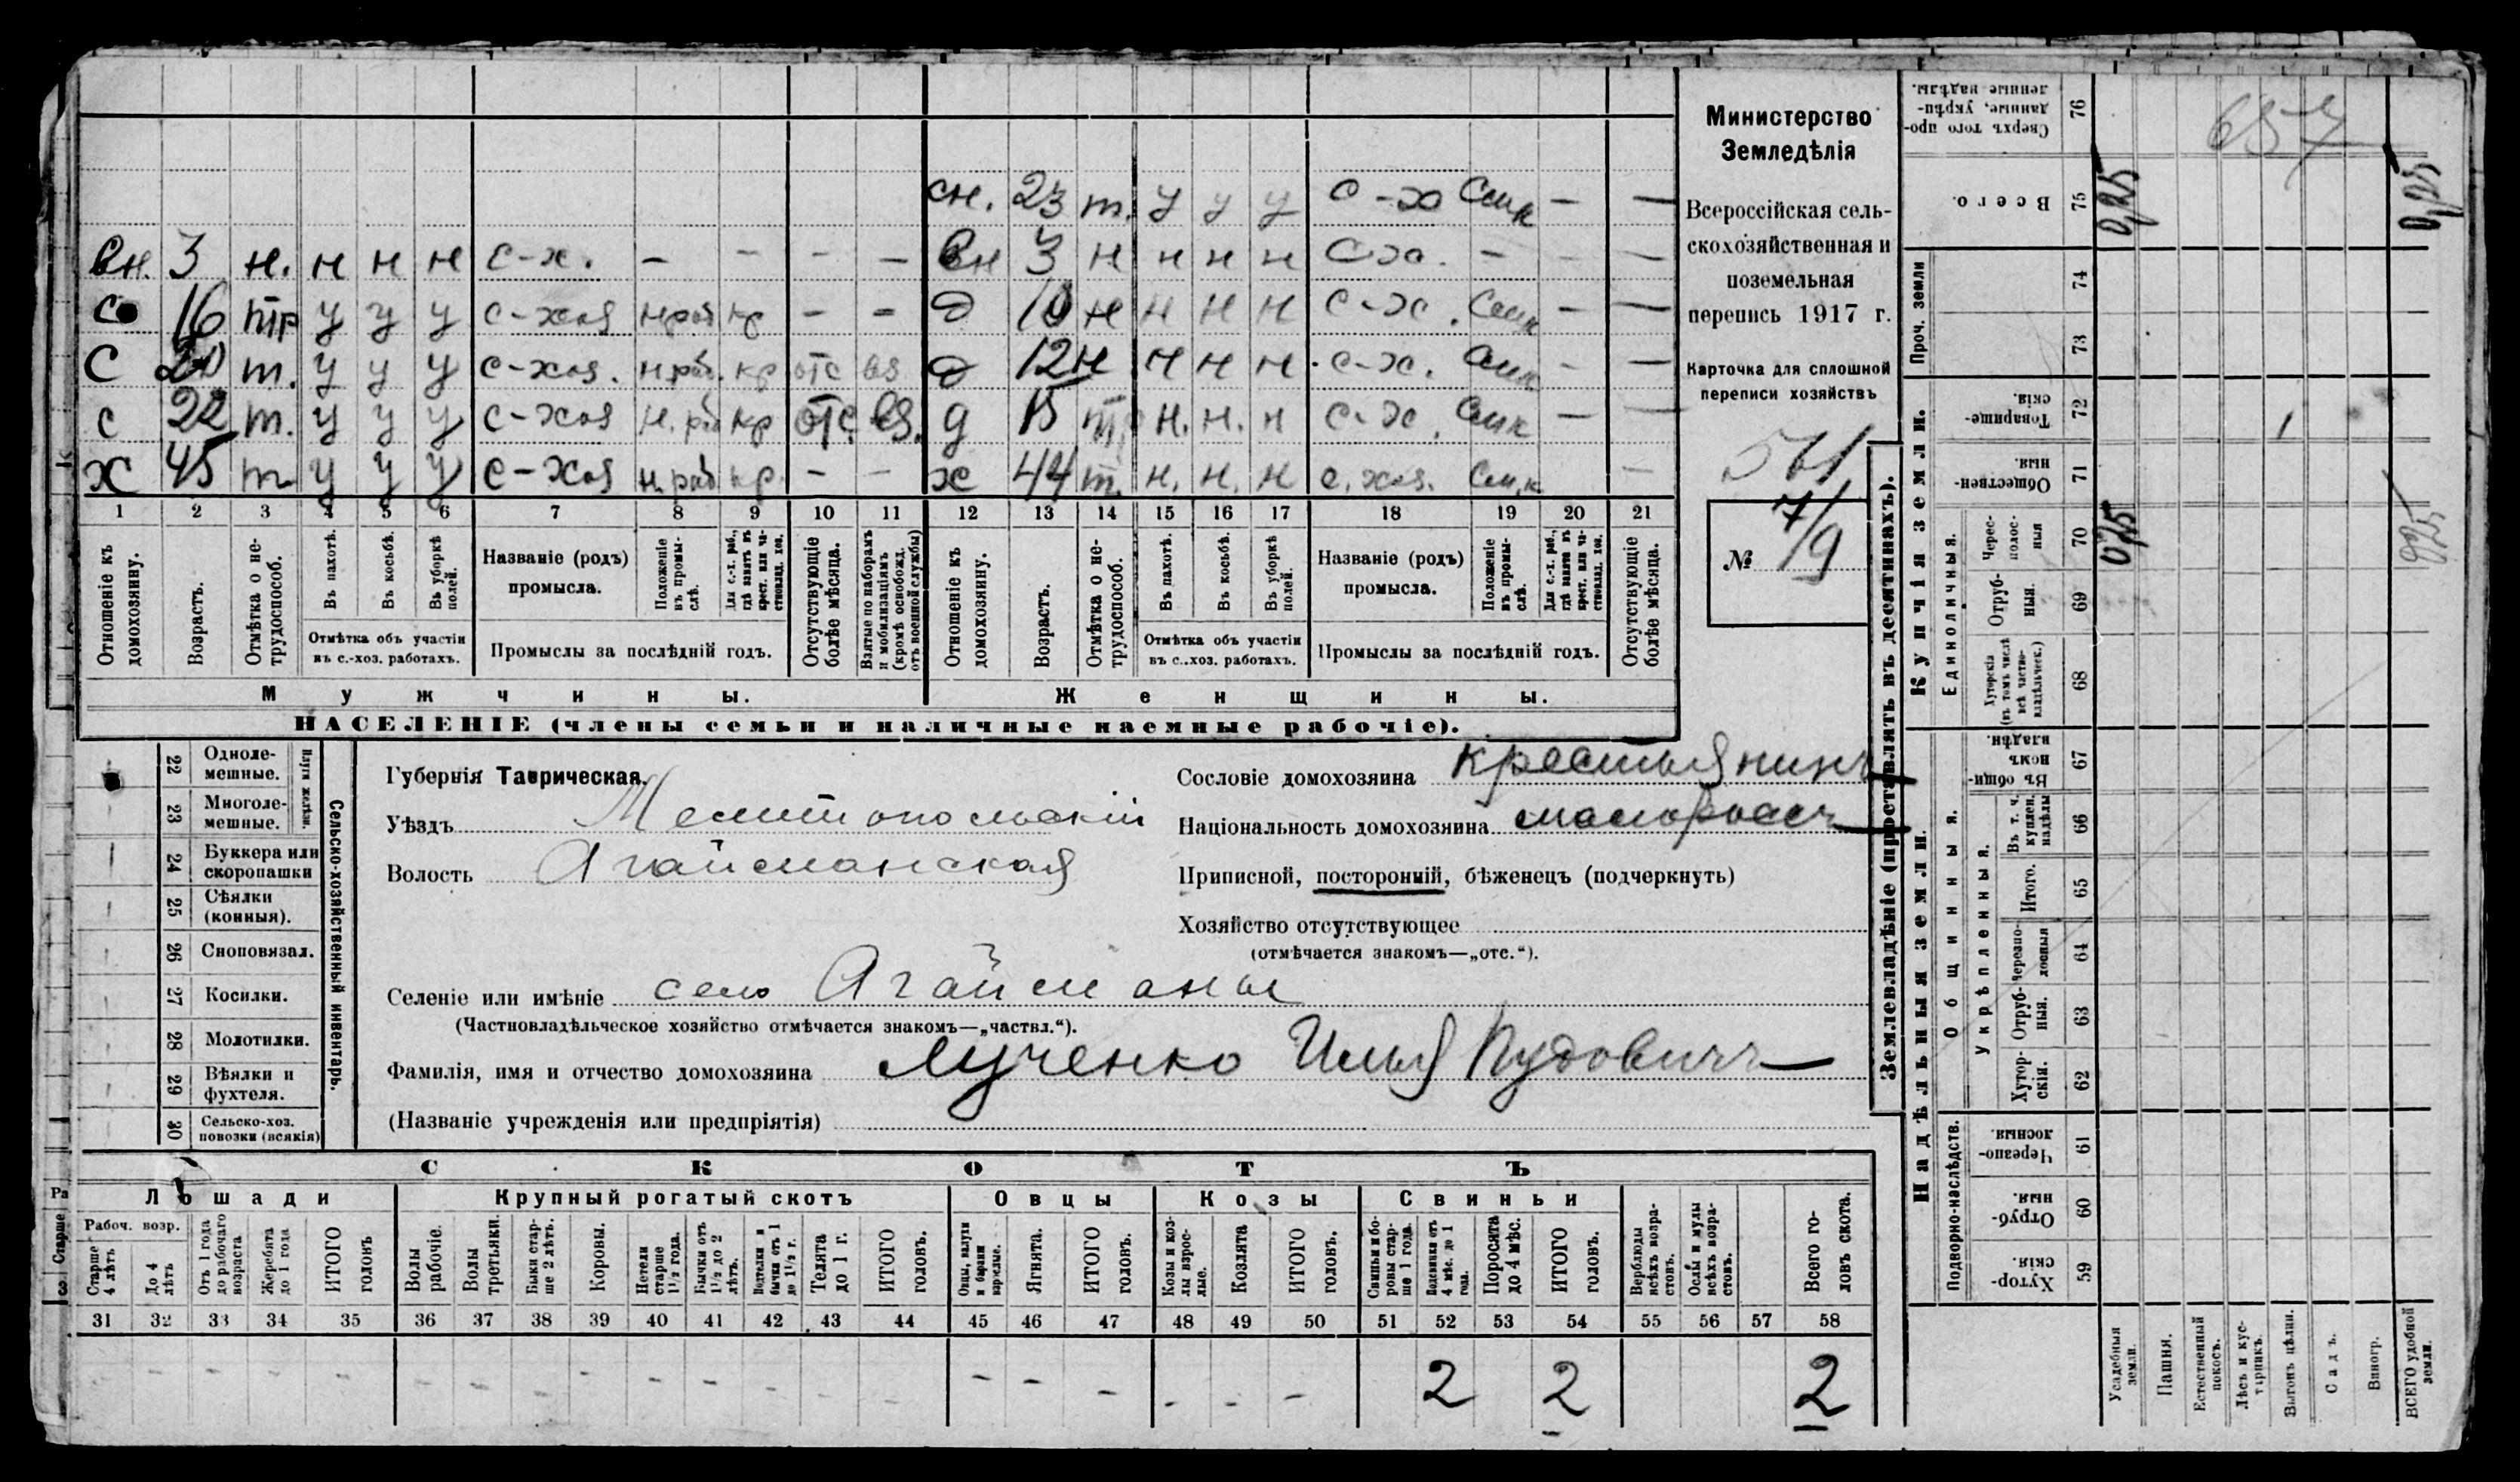 сн. 23 т. у у у с-х Сик — —
вн. 3 н. н н н с-х. — — — — вн 3 н н н н с-х. — — —
с 16 тр у у у с-хоз н.раб кр — — д 10 н н н н с-х. Сик — —
с 20 т. у у у с-хоз. н.раб. кр отс вз д 12 н н н н с-х. Сик — —
с 22 т. у у у с-хоз н.раб кр отс. вз. д 15 тр н. н. н с-х. Сик — —
х 45 т у у у с-хоз н.раб кр. — — х 44 т. н. н. н с.хоз. Сик —
1 2 3 4 5 6 7 8 9 10 11 12 13 14 15 16 17 18 19 20 21
Отношеніе къ домохозяину.
Возрастъ.
Отмѣтка о нетрудоспособ.
Въ пахотѣ.
Въ косьбѣ.
Въ уборкѣ полей.
Отмѣтка объ участіи
въ с.-хоз. работахъ.
Названіе (родъ)
промысла.
Положеніе въ промыслѣ.
Для с.-х. раб., гдѣ занятъ въ крест. или частновлад. хоз.
Промыслы за послѣдній годъ.
Отсутствующіе болѣе мѣсяца.
Взятые по наборамъ и мобилизаціямъ (кромѣ освобожд. отъ военной службы)
Отношеніе къ домохозяину.
Возрастъ.
Отмѣтка о нетрудоспособ.
Въ пахотѣ.
Въ косьбѣ.
Въ уборкѣ полей.
Отмѣтка объ участіи
въ с..хоз. работахъ.
Названіе (родъ)
промысла.
Положеніе въ промыслѣ.
Для с.-х. раб., гдѣ занята въ крест. или частновлад. хоз.
Промыслы за послѣдній годъ.
Отсутствующіе болѣе мѣсяца.
Мужчины.
Женщины.
НАСЕЛЕНІЕ (члены семьи и наличные наемные рабочіе).
Министерство
Земледѣлія
Всероссійская сель-
скохозяйственная и
поземельная
перепись 1917 г.
Карточка для сплошной
переписи хозяйствъ
№ 7/9
22 Однолемешные.
23 Многолемешные.
Плуги желѣзн.
24 Буккера или скоропашки
25 Сѣялки (конныя).
26 Сноповязал.
27 Косилки.
28 Молотилки.
29 Вѣялки и фухтеля.
30 Сельско-хоз. повозки (всякія)
Сельско-хозяйственный инвентарь.
Губернія Таврическая.
Уѣздъ Мелитопольскій
Волость Агайманская
Сословіе домохозяина крестьянинъ
Національность домохозяина малороссъ
Приписной, посторонній, бѣженецъ (подчеркнуть)
Хозяйство отсутствующее
(отмѣчается знакомъ—„отс.“).
Селеніе или имѣніе село Агайманы
(Частновладѣльческое хозяйство отмѣчается знакомъ—„частвл.“).
Фамилія, имя и отчество домохозяина Лученко Илья Пудовичъ
(Названіе учрежденія или предпріятія)
СКОТЪ
Лошади
Крупный рогатый скотъ
Овцы
Козы
Свиньи
Рабоч. возр.
Старше 4 лѣтъ
До 4 лѣтъ
Отъ 1 года до рабочаго возраста
Жеребята до 1 года
ИТОГО головъ
Волы рабочіе.
Волы третьяки.
Быки старше 2 лѣтъ.
Коровы.
Нетели старше 1½ года.
Бычки отъ 1½ до 2 лѣтъ.
Телята до 1 г.
ИТОГО головъ.
Овцы, валухи и бараны взрослые.
Ягнята.
ИТОГО головъ.
Козы и козлы взрослые.
Козлята
ИТОГО головъ.
Свиньи и боровы старше 1 года.
Подсвинки отъ 4 мѣс. до 1 года.
Поросята до 4 мѣс.
ИТОГО головъ.
Верблюды всѣхъ возрастовъ.
Ослы и мулы всѣхъ возрастовъ.
Всего головъ скота.
31 32 33 34 35 36 37 38 39 40 41 42 43 44 45 46 47 48 49 50 51 52 53 54 55 56 57 58
2 2 2
Землевладѣніе (проставлять въ десятинахъ).
Сверхъ того проданные, укрѣпленные надѣлы. 76
Всего. 75 0,25 0,25
Проч. земли 74 73
Купчія земли.
Товарищескія. 72
Общественныя. 71
Единоличныя.
Чересполосныя 70 0,25
Отрубныя. 69
Хуторскія (въ томъ числѣ всѣ частновладѣльческ.) 68
Надѣльныя земли.
Общинныя.
Въ общинномъ владѣн. 67
Укрѣпленныя.
Въ т. ч. куплен. надѣлы 66
Итого. 65
Черезполосныя 64
Отрубныя. 63
Хуторскія. 62
Подворно-наслѣдств.
Черезполосныя. 61
Отрубныя. 60
Хуторскія. 59
Усадебныя земли.
Пашня.
Естественный покосъ.
Лѣсъ и кустарникъ.
Выгонъ цѣлин.
Садъ.
Виногр.
ВСЕГО удобной земли.